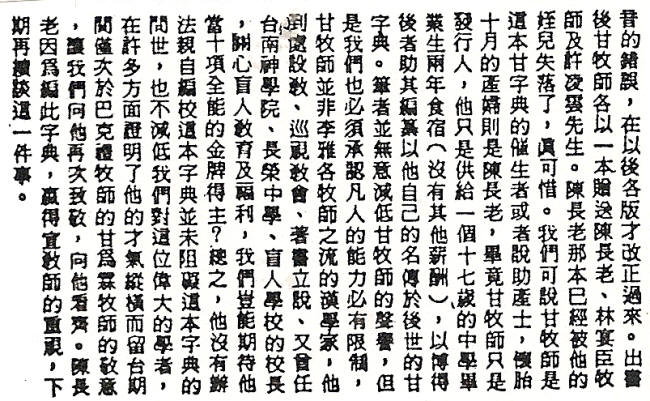 音的錯誤，在以後各版才改正過來。出書
後甘牧師各以一本贈送陳長老、林宴臣牧
師及許凌雲先生。陳長老那本已經被他的
姪兒失落了，眞可惜。我們可說甘牧師是
這本甘字典的催生者或者說助產士，懷胎
十月的產婦則是陳長老，畢竟甘牧師只是
發行人，他只是供給一個十七歲的中學畢
業生兩年食宿（沒有其他薪酬），以博得
後者助其編纂以他自己的名傳於後世的甘
字典。筆者並無意減低甘牧師的聲譽，但
是我們也必須承認凡人的能力必有限制，
甘牧師並非李雅各牧師之流的漢學家，他
到處設教、巡視教會、著書立說、又曾任
台南神學院、長榮中學、盲人學校的校長
，關心盲人教育及福利，我們豈能期待他
當十項全能的金牌得主？總之，他沒有辦
法親自編校這本字典並未阻礙這本字典的
問世，也不減低我們對這位偉大的學者，
在許多方面證明了他的才氣縱橫而留台期
間僅次於巴克禮牧師的甘爲霖牧師的敬意
，讓我們向他再次致敬，向他看齊。陳長
老因爲編此字典，贏得宜牧師的重視，下
期再續談這一件事。